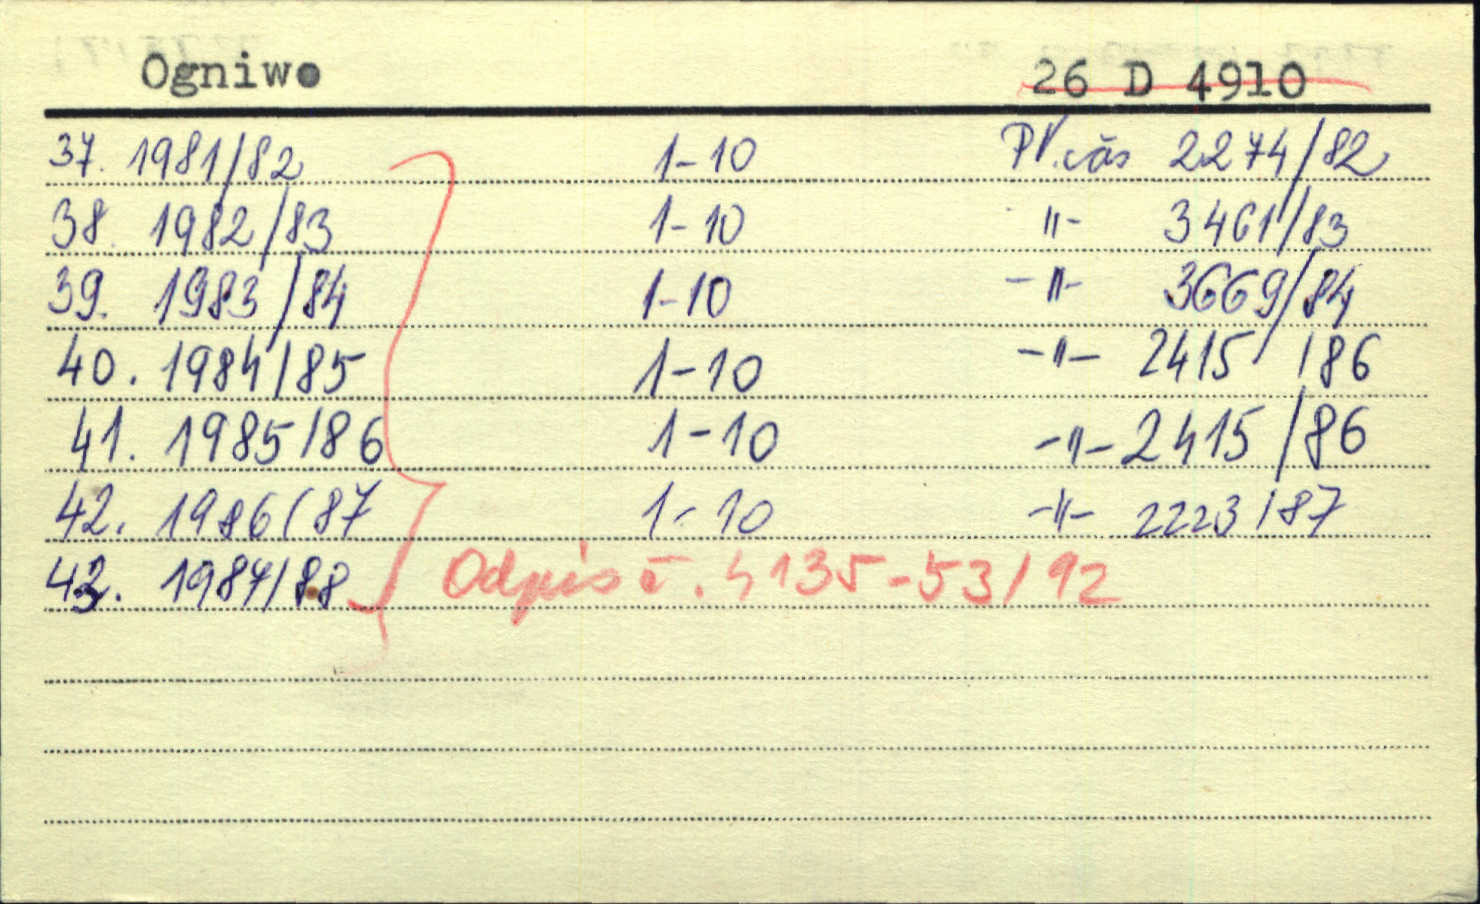 Ogniwo 26 D 4910
37. 1981/82 1-10 PV. čás 2274/82
38. 1982/83 1-10 "- 3461/83
39. 1983/84 1-10 -"- 3669/84
40. 1984/85 1-10 -"- 2415/86
41. 1985/86 1-10 -"- 2415/86
42. 1986/87 1-10 -"- 2223/87
43. 1987/88 Odpis č. 4135-53/92